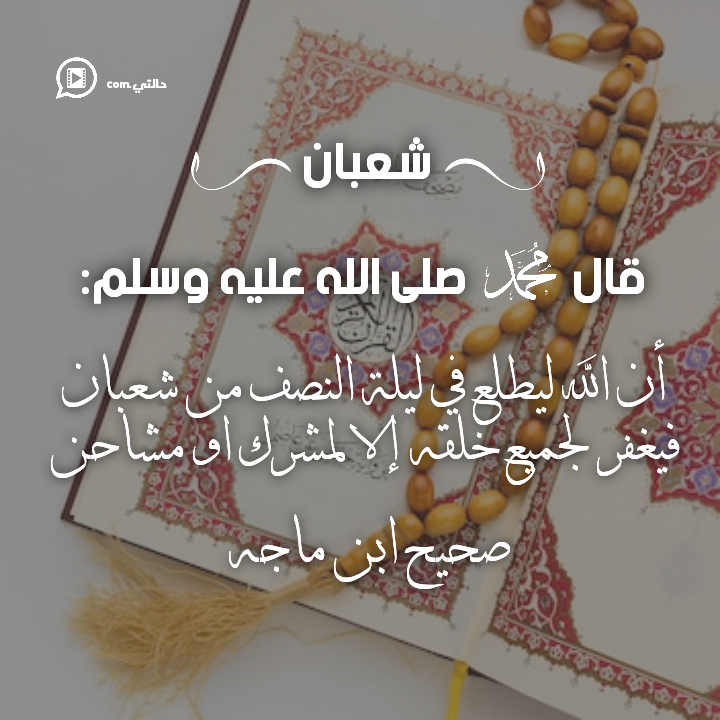 حالتي.com
شعبان
قال محمد صلى الله عليه وسلم:
أن الله ليطلع في ليلة النصف من شعبان
فيغفر لجميع خلقه إلا لمشرك او مشاحن
صحيح ابن ماجه